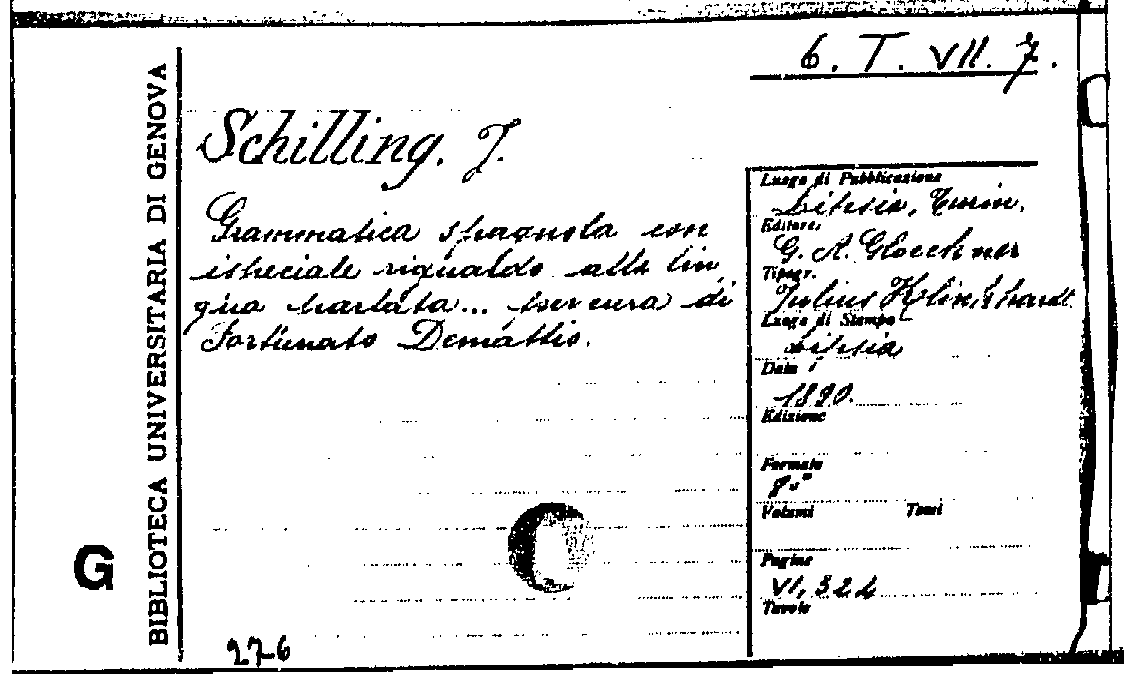 6. T. VII. 7.
BIBLIOTECA UNIVERSITARIA DI GENOVA
G
Schilling. J.
Grammatica spagnola con
ispeciale riguardo alla lin
gua parlata... per cura di
Fortunato Demattio.
276
Luogo di Pubblicazione
Lipsia, Turin.
Editore.
G. A. Gloeckner
Tipogr.
Julius Klinkhardt.
Luogo di Stampa
Lipsia
Data
1890.
Edizione
Formato
8°
Volumi Tomi
Pagine
VI, 322
Tavole